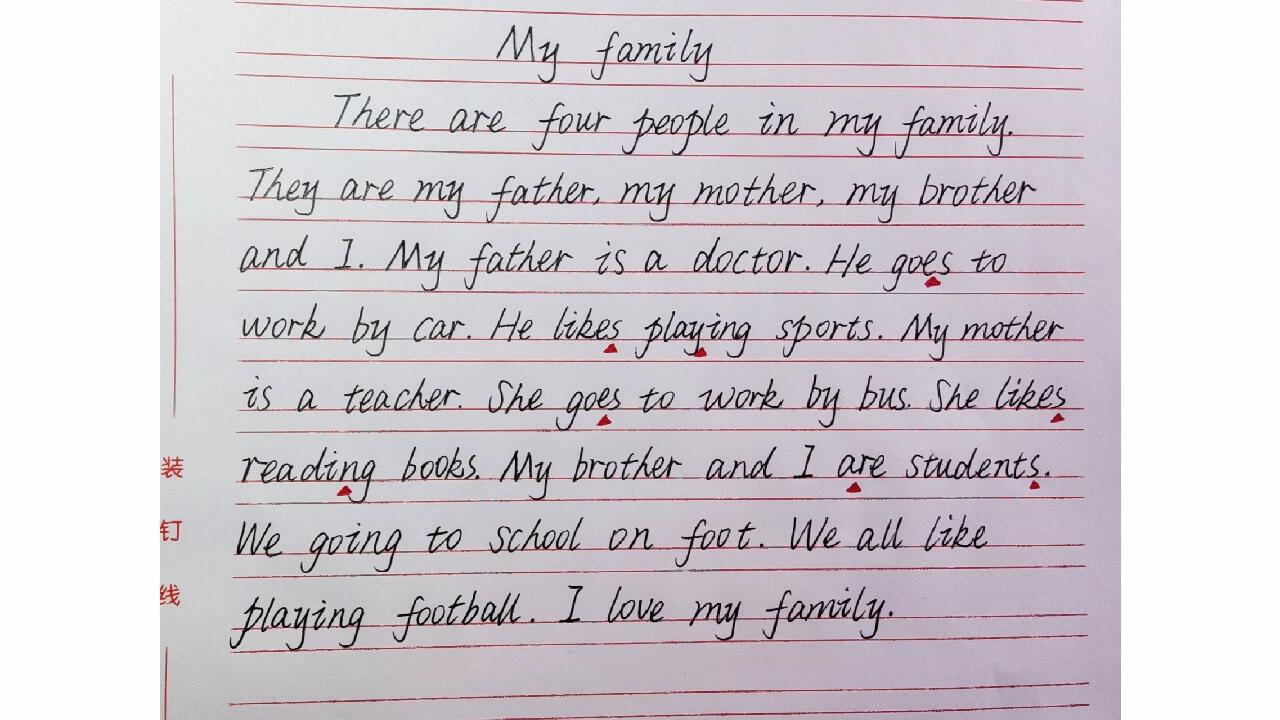 My family
There are four people in my family.
They are my father, my mother, my brother
and I. My father is a doctor. He goes to
work by car. He likes playing sports. My mother
is a teacher. She goes to work by bus. She likes
reading books. My brother and I are students.
We going to school on foot. We all like
playing football. I love my family.
装
钉
线